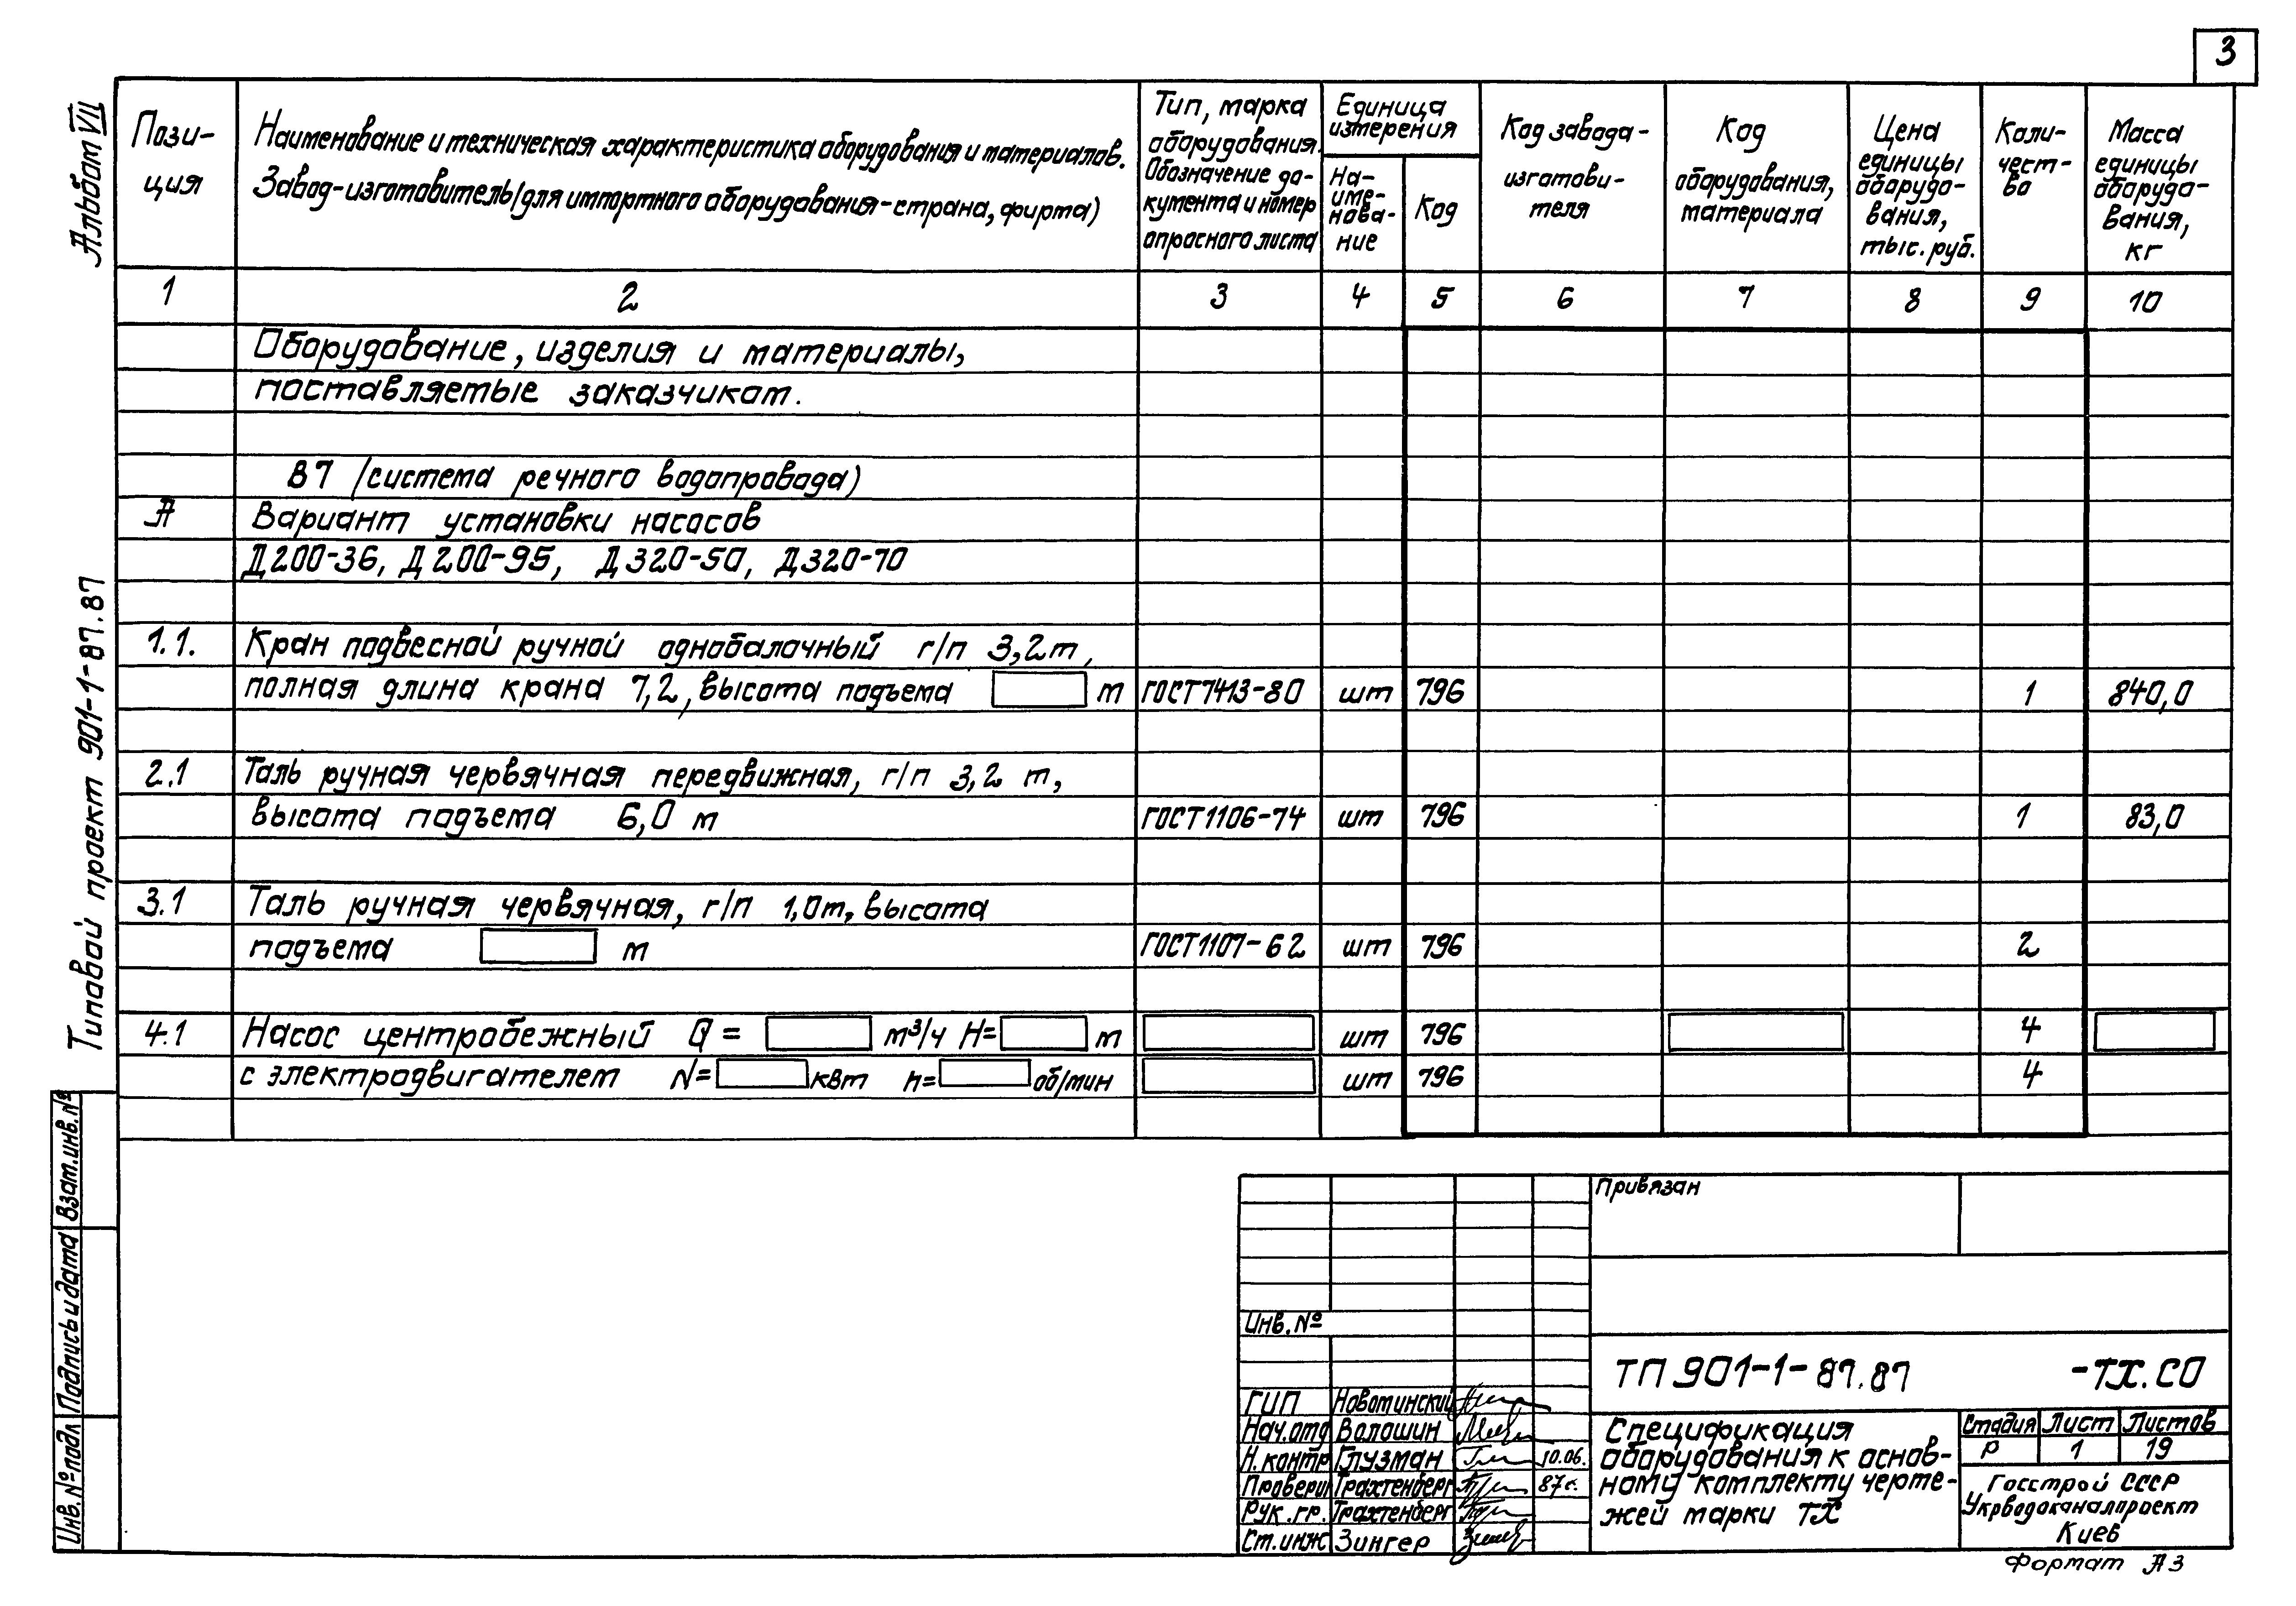 3
Альбом VII
Типовой проект 901-1-87.87
Пози-
ция
Наименование и техническая характеристика оборудования и материалов.
Завод-изготовитель (для импортного оборудования-страна, фирма)
Тип, марка
оборудования.
Обозначение до-
кумента и номер
опросного листа
Единица
измерения
На-
име-
нова-
ние
Код
Код завода-
изготови-
теля
Код
оборудования,
материала
Цена
единицы
оборудо-
вания,
тыс. руб.
Коли-
чест-
во
Масса
единицы
оборудо-
вания,
кг
1 2 3 4 5 6 7 8 9 10
Оборудование, изделия и материалы,
поставляемые заказчиком.
В7 (система речного водопровода)
А Вариант установки насосов
Д200-36, Д200-95, Д320-50, Д320-70
1.1. Кран подвесной ручной однобалочный г/п 3,2т,
полная длина крана 7,2, высота подъема м ГОСТ7413-80 шт 796 1 840,0
2.1 Таль ручная червячная передвижная, г/п 3,2 т,
высота подъема 6,0 м ГОСТ1106-74 шт 796 1 83,0
3.1 Таль ручная червячная, г/п 1,0т, высота
подъема м ГОСТ1107-62 шт 796 2
4.1 Насос центробежный Q = м³/ч H= м шт 796 4
с электродвигателем N= квт n= об/мин шт 796 4
Инв.№подл Подпись и дата Взам.инв.№
Привязан
Инв.№
ТП 901-1-87.87 -ТХ.СО
ГИП Новоминский
Нач.отд Волошин
Н.контр Глузман 10.06.
Проверил Трахтенберг 87г.
Рук.гр. Трахтенберг
Ст.инж Зингер
Спецификация
оборудования к основ-
ному комплекту черте-
жей марки ТХ
Стадия Лист Листов
Р 1 19
Госстрой СССР
Укрводоканалпроект
Киев
Формат А3